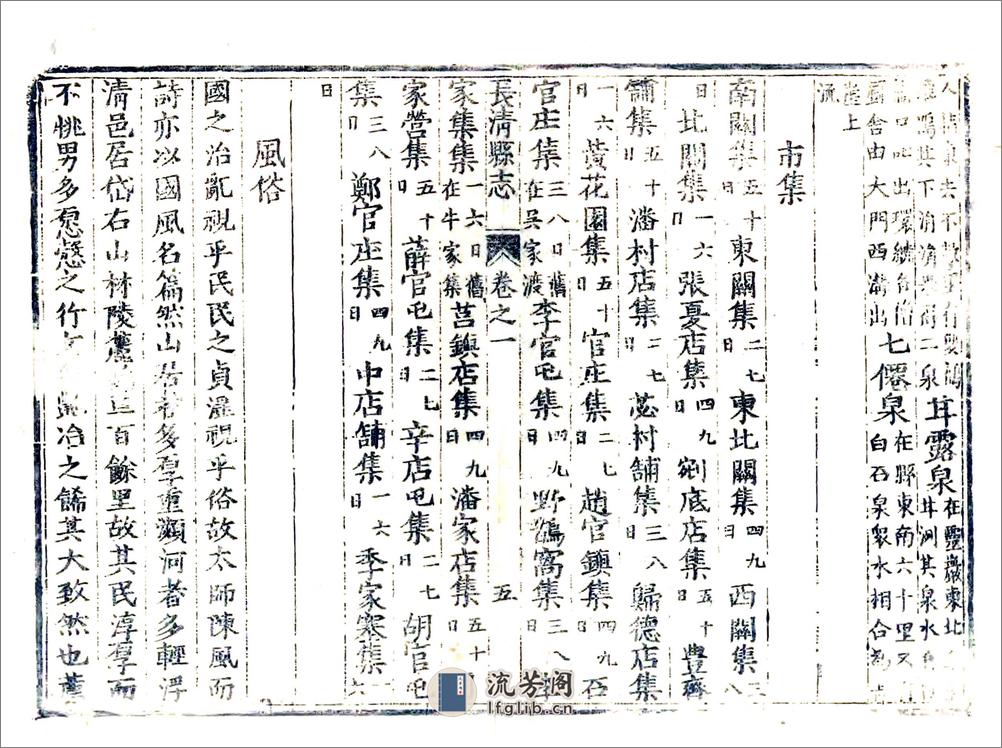 泉去不
鳴其下涓涓
二泉
甘露泉在靈巖東北
其泉水
出環繞
舍由大門西瀉出
七僊泉在縣東南六十里又
白石泉衆水相合為
陸上
流
市集
南關集五十日東關集二七日東北關集四九日西關集三八
日北關集一六日張夏店集四九日剜底店集五十日豐齊
舖集五十日潘村店集二七日苾村舖集三八日歸德店集
一六日黄花園集五十日官庄集二七日趙官鎮集四九日石
官庄集三八日舊在吳家渡李官屯集四九日野鵲窩集三八日
長清縣志 卷之一 五
家集集一六日舊在牛家集莒鎮店集四九日潘家店集五十日
家營集五十日薛官屯集二七日辛店屯集二七日胡官屯
集三八日鄭官庄集四九日中店舖集一六日季家寨集一六
日
風俗
國之治亂視乎民民之貞淫視乎俗故太師陳風而
詩亦以國風名篇然山居者多厚重瀕河者多輕浮
清邑居岱右山林陵麓百餘里故其民淳厚而
不恌男多愿慤之行女冶之餙其大致然也
流芳阁
lfglib.cn